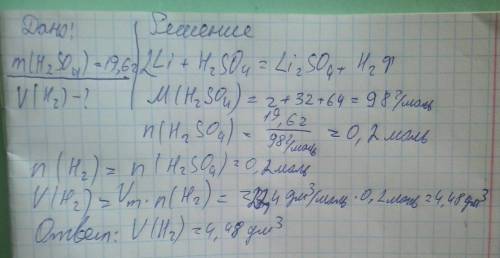 Дано: Решение
m(H₂SO₄)=19,6г 2Li + H₂SO₄ = Li₂SO₄ + H₂↑
V(H₂)-? M(H₂SO₄) = 2+32+64 = 98 г/моль
n(H₂SO₄) = 19,6г / 98г/моль = 0,2 моль
n(H₂) = n(H₂SO₄) = 0,2 моль
V(H₂) = Vm · n(H₂) = 22,4 дм³/моль · 0,2 моль = 4,48 дм³
Ответ: V(H₂) = 4,48 дм³